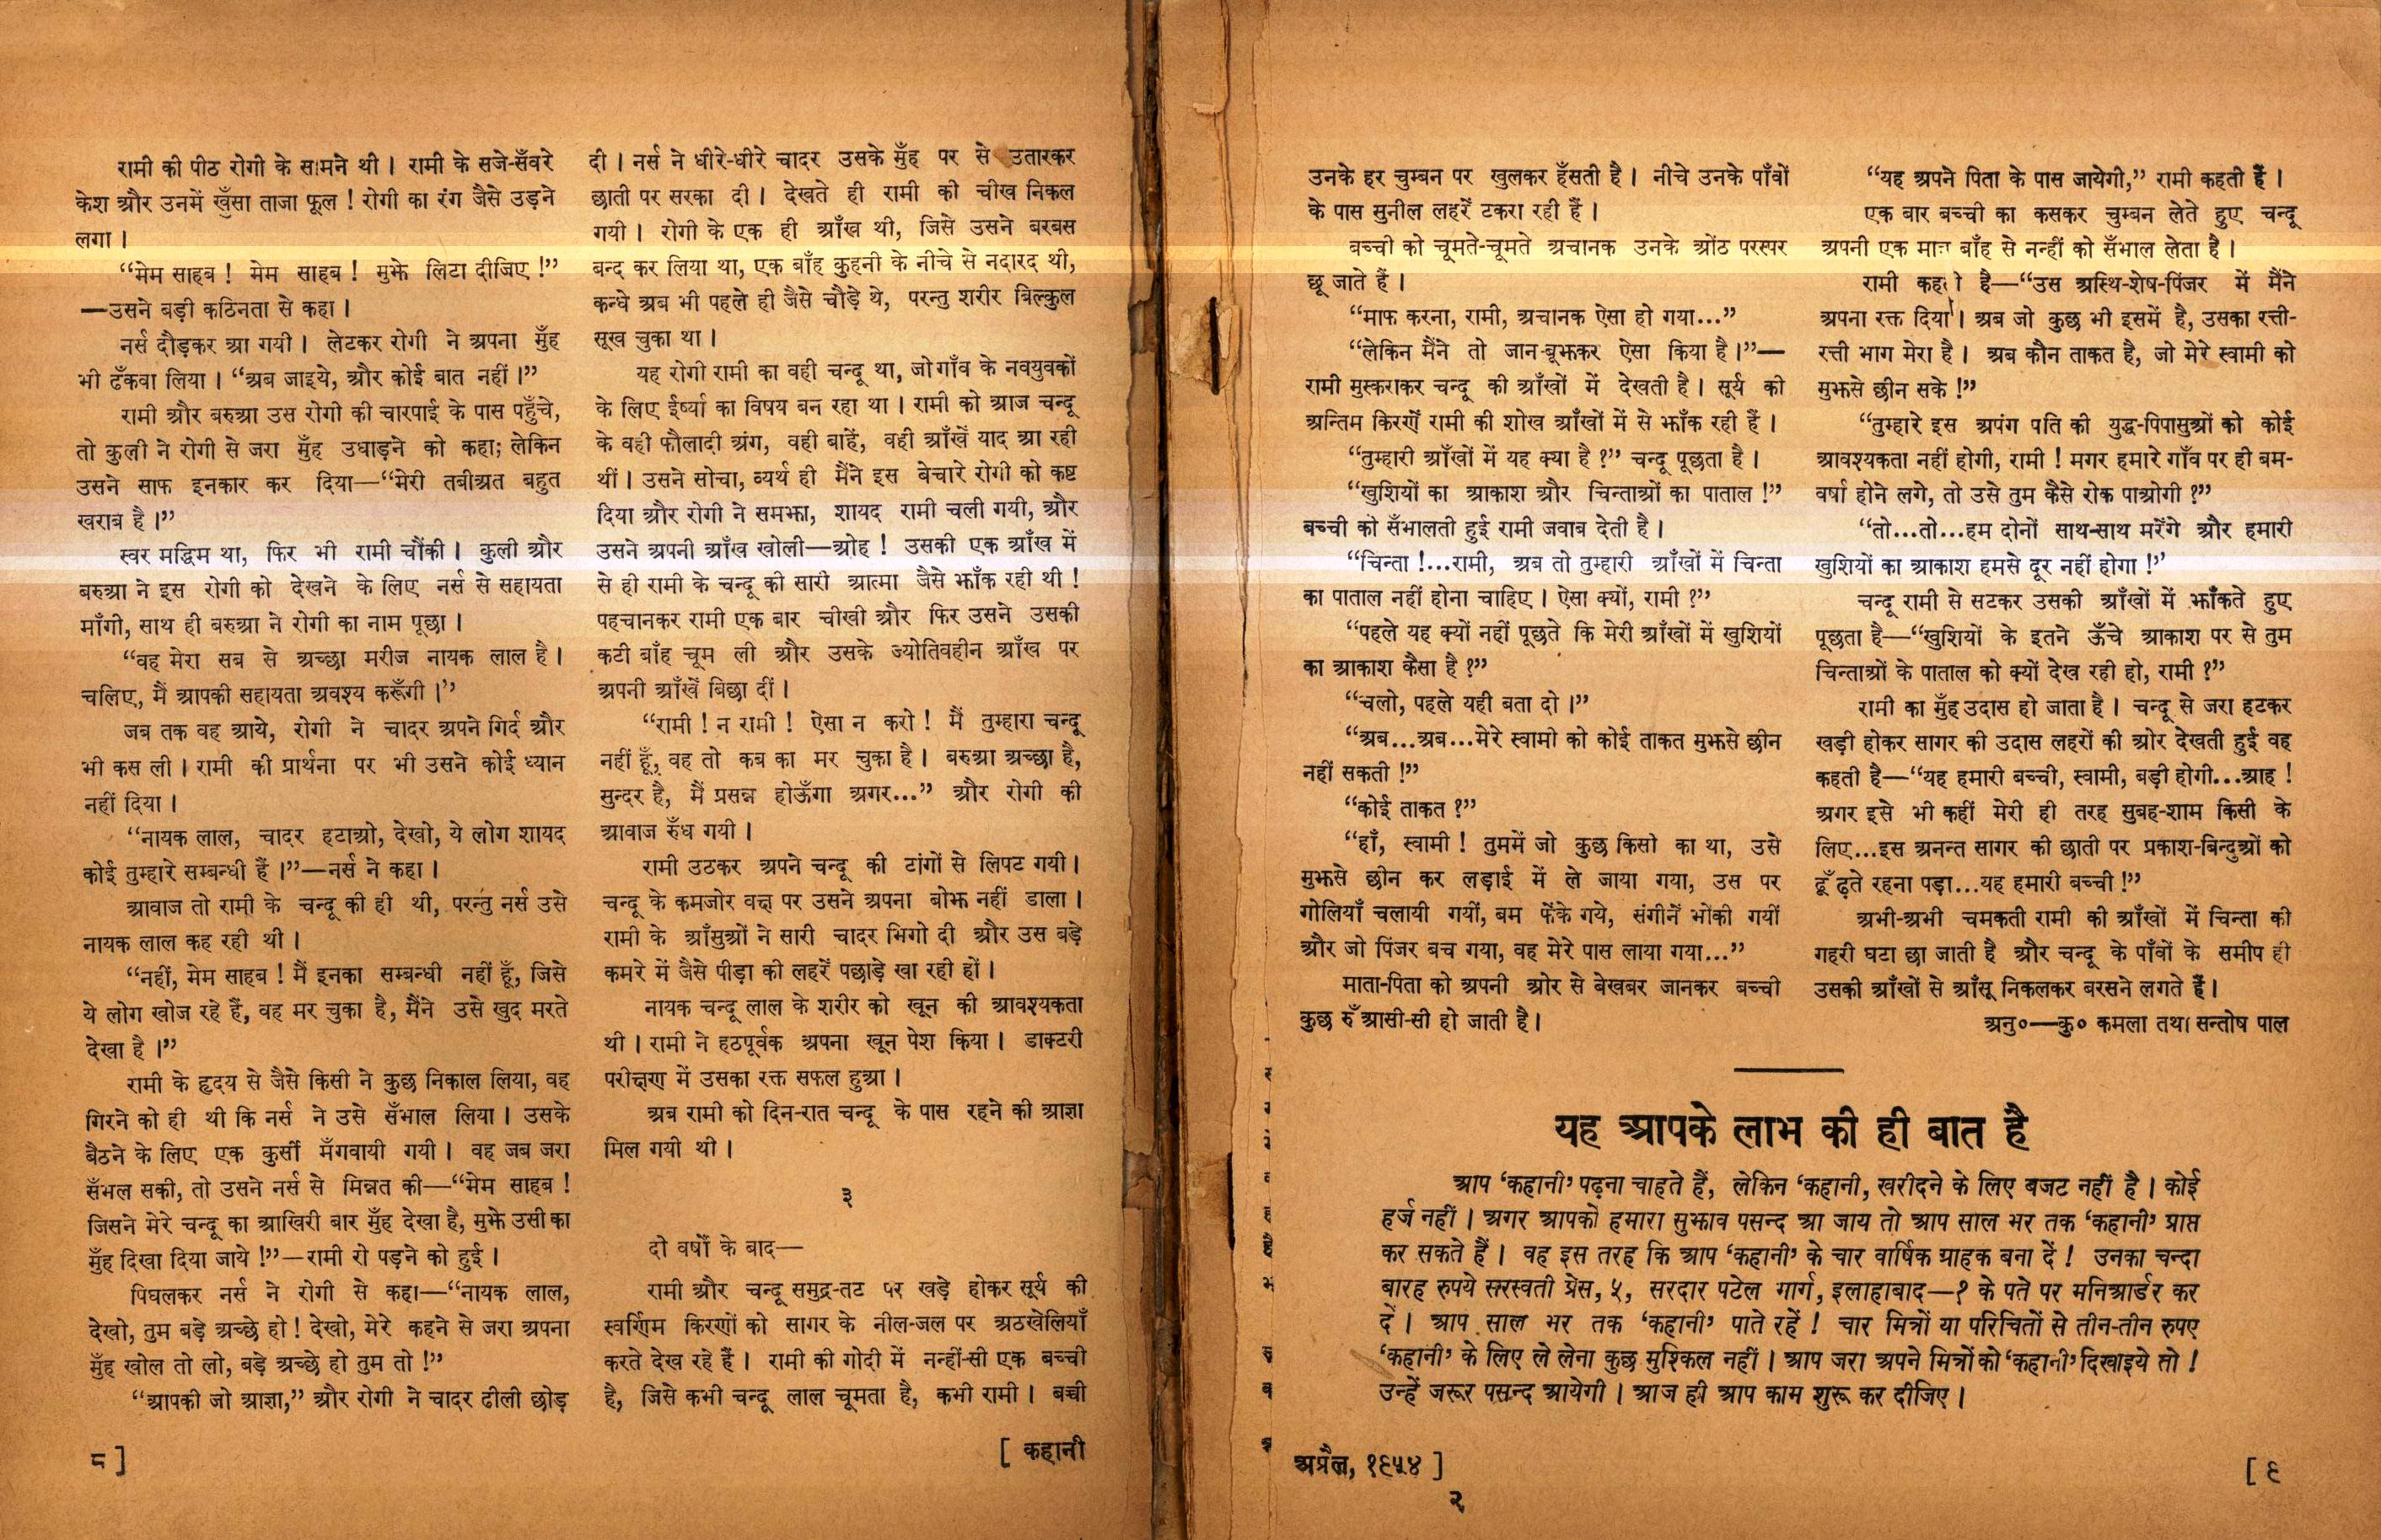 रामी की पीठ रोगी के सामने थी। रामी के सजे-सँवरे
केश और उनमें खुँसा ताजा फूल ! रोगी का रंग जैसे उड़ने
लगा।
“मेम साहब ! मेम साहब ! मुझे लिटा दीजिए !”
—उसने बड़ी कठिनता से कहा।
नर्स दौड़कर आ गयी। लेटकर रोगी ने अपना मुँह
भी ढँकवा लिया। “अब जाइये, और कोई बात नहीं।”
रामी और बरुआ उस रोगी की चारपाई के पास पहुँचे,
तो कुली ने रोगी से जरा मुँह उघाड़ने को कहा; लेकिन
उसने साफ इनकार कर दिया—“मेरी तबीअत बहुत
खराब है।”
स्वर मद्धिम था, फिर भी रामी चौंकी। कुली और
बरुआ ने इस रोगी को देखने के लिए नर्स से सहायता
माँगी, साथ ही बरुआ ने रोगी का नाम पूछा।
“वह मेरा सब से अच्छा मरीज नायक लाल है।
चलिए, मैं आपकी सहायता अवश्य करूँगी।”
जब तक वह आये, रोगी ने चादर अपने गिर्द और
भी कस ली। रामी की प्रार्थना पर भी उसने कोई ध्यान
नहीं दिया।
“नायक लाल, चादर हटाओ, देखो, ये लोग शायद
कोई तुम्हारे सम्बन्धी हैं।”—नर्स ने कहा।
आवाज तो रामी के चन्दू की ही थी, परन्तु नर्स उसे
नायक लाल कह रही थी।
“नहीं, मेम साहब ! मैं इनका सम्बन्धी नहीं हूँ, जिसे
ये लोग खोज रहे हैं, वह मर चुका है, मैंने उसे खुद मरते
देखा है।”
रामी के हृदय से जैसे किसी ने कुछ निकाल लिया, वह
गिरने को ही थी कि नर्स ने उसे सँभाल लिया। उसके
बैठने के लिए एक कुर्सी मँगवायी गयी। वह जब जरा
सँभल सकी, तो उसने नर्स से मिन्नत की—“मेम साहब !
जिसने मेरे चन्दू का आखिरी बार मुँह देखा है, मुझे उसी का
मुँह दिखा दिया जाये !”—रामी रो पड़ने को हुई।
पिघलकर नर्स ने रोगी से कहा—“नायक लाल,
देखो, तुम बड़े अच्छे हो ! देखो, मेरे कहने से जरा अपना
मुँह खोल तो लो, बड़े अच्छे हो तुम तो !”
“आपकी जो आज्ञा,” और रोगी ने चादर ढीली छोड़
८ ]
दी। नर्स ने धीरे-धीरे चादर उसके मुँह पर से उतारकर
छाती पर सरका दी। देखते ही रामी की चीख निकल
गयी। रोगी के एक ही आँख थी, जिसे उसने बरबस
बन्द कर लिया था, एक बाँह कुहनी के नीचे से नदारद थी,
कन्धे अब भी पहले ही जैसे चौड़े थे, परन्तु शरीर बिल्कुल
सूख चुका था।
यह रोगी रामी का वही चन्दू था, जो गाँव के नवयुवकों
के लिए ईर्ष्या का विषय बन रहा था। रामी को आज चन्दू
के वही फौलादी अंग, वही बाहें, वही आँखें याद आ रही
थीं। उसने सोचा, व्यर्थ ही मैंने इस बेचारे रोगी को कष्ट
दिया और रोगी ने समझा, शायद रामी चली गयी, और
उसने अपनी आँख खोली—ओह ! उसकी एक आँख में
से ही रामी के चन्दू की सारी आत्मा जैसे झाँक रही थी !
पहचानकर रामी एक बार चीखी और फिर उसने उसकी
कटी बाँह चूम ली और उसके ज्योतिवहीन आँख पर
अपनी आँखें बिछा दीं।
“रामी ! न रामी ! ऐसा न करो ! मैं तुम्हारा चन्दू
नहीं हूँ, वह तो कब का मर चुका है। बरुआ अच्छा है,
सुन्दर है, मैं प्रसन्न होऊँगा अगर...” और रोगी की
आवाज रुँध गयी।
रामी उठकर अपने चन्दू की टांगों से लिपट गयी।
चन्दू के कमजोर वक्ष पर उसने अपना बोझ नहीं डाला।
रामी के आँसुओं ने सारी चादर भिगो दी और उस बड़े
कमरे में जैसे पीड़ा की लहरें पछाड़े खा रही हों।
नायक चन्दू लाल के शरीर को खून की आवश्यकता
थी। रामी ने हठपूर्वक अपना खून पेश किया। डाक्टरी
परीक्षण में उसका रक्त सफल हुआ।
अब रामी को दिन-रात चन्दू के पास रहने की आज्ञा
मिल गयी थी।
३
दो वर्षों के बाद—
रामी और चन्दू समुद्र-तट पर खड़े होकर सूर्य की
स्वर्णिम किरणों को सागर के नील-जल पर अठखेलियाँ
करते देख रहे हैं। रामी की गोदी में नन्हीं-सी एक बच्ची
है, जिसे कभी चन्दू लाल चूमता है, कभी रामी। बच्ची
[ कहानी
उनके हर चुम्बन पर खुलकर हँसती है। नीचे उनके पाँवों
के पास सुनील लहरें टकरा रही हैं।
बच्ची को चूमते-चूमते अचानक उनके ओंठ परस्पर
छू जाते हैं।
“माफ करना, रामी, अचानक ऐसा हो गया...”
“लेकिन मैंने तो जान-बूझकर ऐसा किया है।”—
रामी मुस्कराकर चन्दू की आँखों में देखती है। सूर्य की
अन्तिम किरणें रामी की शोख आँखों में से झाँक रही हैं।
“तुम्हारी आँखों में यह क्या है ?” चन्दू पूछता है।
“खुशियों का आकाश और चिन्ताओं का पाताल !”
बच्ची को सँभालती हुई रामी जवाब देती है।
“चिन्ता !...रामी, अब तो तुम्हारी आँखों में चिन्ता
का पाताल नहीं होना चाहिए। ऐसा क्यों, रामी ?”
“पहले यह क्यों नहीं पूछते कि मेरी आँखों में खुशियों
का आकाश कैसा है ?”
“चलो, पहले यही बता दो।”
“अब...अब...मेरे स्वामी को कोई ताकत मुझसे छीन
नहीं सकती !”
“कोई ताकत ?”
“हाँ, स्वामी ! तुममें जो कुछ किसी का था, उसे
मुझसे छीन कर लड़ाई में ले जाया गया, उस पर
गोलियाँ चलायी गयीं, बम फेंके गये, संगीनें भोंकी गयीं
और जो पिंजर बच गया, वह मेरे पास लाया गया...”
माता-पिता को अपनी ओर से बेखबर जानकर बच्ची
कुछ रुँआसी-सी हो जाती है।
“यह अपने पिता के पास जायेगी,” रामी कहती हैं।
एक बार बच्ची का कसकर चुम्बन लेते हुए चन्दू
अपनी एक मात्र बाँह से नन्हीं को सँभाल लेता है।
रामी कहती है—“उस अस्थि-शेष-पिंजर में मैंने
अपना रक्त दिया। अब जो कुछ भी इसमें है, उसका रत्ती-
रत्ती भाग मेरा है। अब कौन ताकत है, जो मेरे स्वामी को
मुझसे छीन सके !”
“तुम्हारे इस अपंग पति की युद्ध-पिपासुओं को कोई
आवश्यकता नहीं होगी, रामी ! मगर हमारे गाँव पर ही बम-
वर्षा होने लगे, तो उसे तुम कैसे रोक पाओगी ?”
“तो...तो...हम दोनों साथ-साथ मरेंगे और हमारी
खुशियों का आकाश हमसे दूर नहीं होगा !”
चन्दू रामी से सटकर उसकी आँखों में झाँकते हुए
पूछता है—“खुशियों के इतने ऊँचे आकाश पर से तुम
चिन्ताओं के पाताल को क्यों देख रही हो, रामी ?”
रामी का मुँह उदास हो जाता है। चन्दू से जरा हटकर
खड़ी होकर सागर की उदास लहरों की ओर देखती हुई वह
कहती है—“यह हमारी बच्ची, स्वामी, बड़ी होगी...आह !
अगर इसे भी कहीं मेरी ही तरह सुबह-शाम किसी के
लिए...इस अनन्त सागर की छाती पर प्रकाश-बिन्दुओं को
ढूँढ़ते रहना पड़ा...यह हमारी बच्ची !”
अभी-अभी चमकती रामी की आँखों में चिन्ता की
गहरी घटा छा जाती है और चन्दू के पाँवों के समीप ही
उसकी आँखों से आँसू निकलकर बरसने लगते हैं।
अनु०—कु० कमला तथा सन्तोष पाल
यह आपके लाभ की ही बात है
आप ‘कहानी’ पढ़ना चाहते हैं, लेकिन ‘कहानी, खरीदने के लिए बजट नहीं है। कोई
हर्ज नहीं। अगर आपको हमारा सुझाव पसन्द आ जाय तो आप साल भर तक ‘कहानी’ प्राप्त
कर सकते हैं। वह इस तरह कि आप ‘कहानी’ के चार वार्षिक ग्राहक बना दें ! उनका चन्दा
बारह रुपये सरस्वती प्रेस, ५, सरदार पटेल मार्ग, इलाहाबाद—१ के पते पर मनिआर्डर कर
दें। आप साल भर तक ‘कहानी’ पाते रहें ! चार मित्रों या परिचितों से तीन-तीन रुपए
‘कहानी’ के लिए ले लेना कुछ मुश्किल नहीं। आप जरा अपने मित्रों को ‘कहानी’ दिखाइये तो !
उन्हें जरूर पसन्द आयेगी। आज ही आप काम शुरू कर दीजिए।
अप्रैल, १९५४ ]
२
[ ९